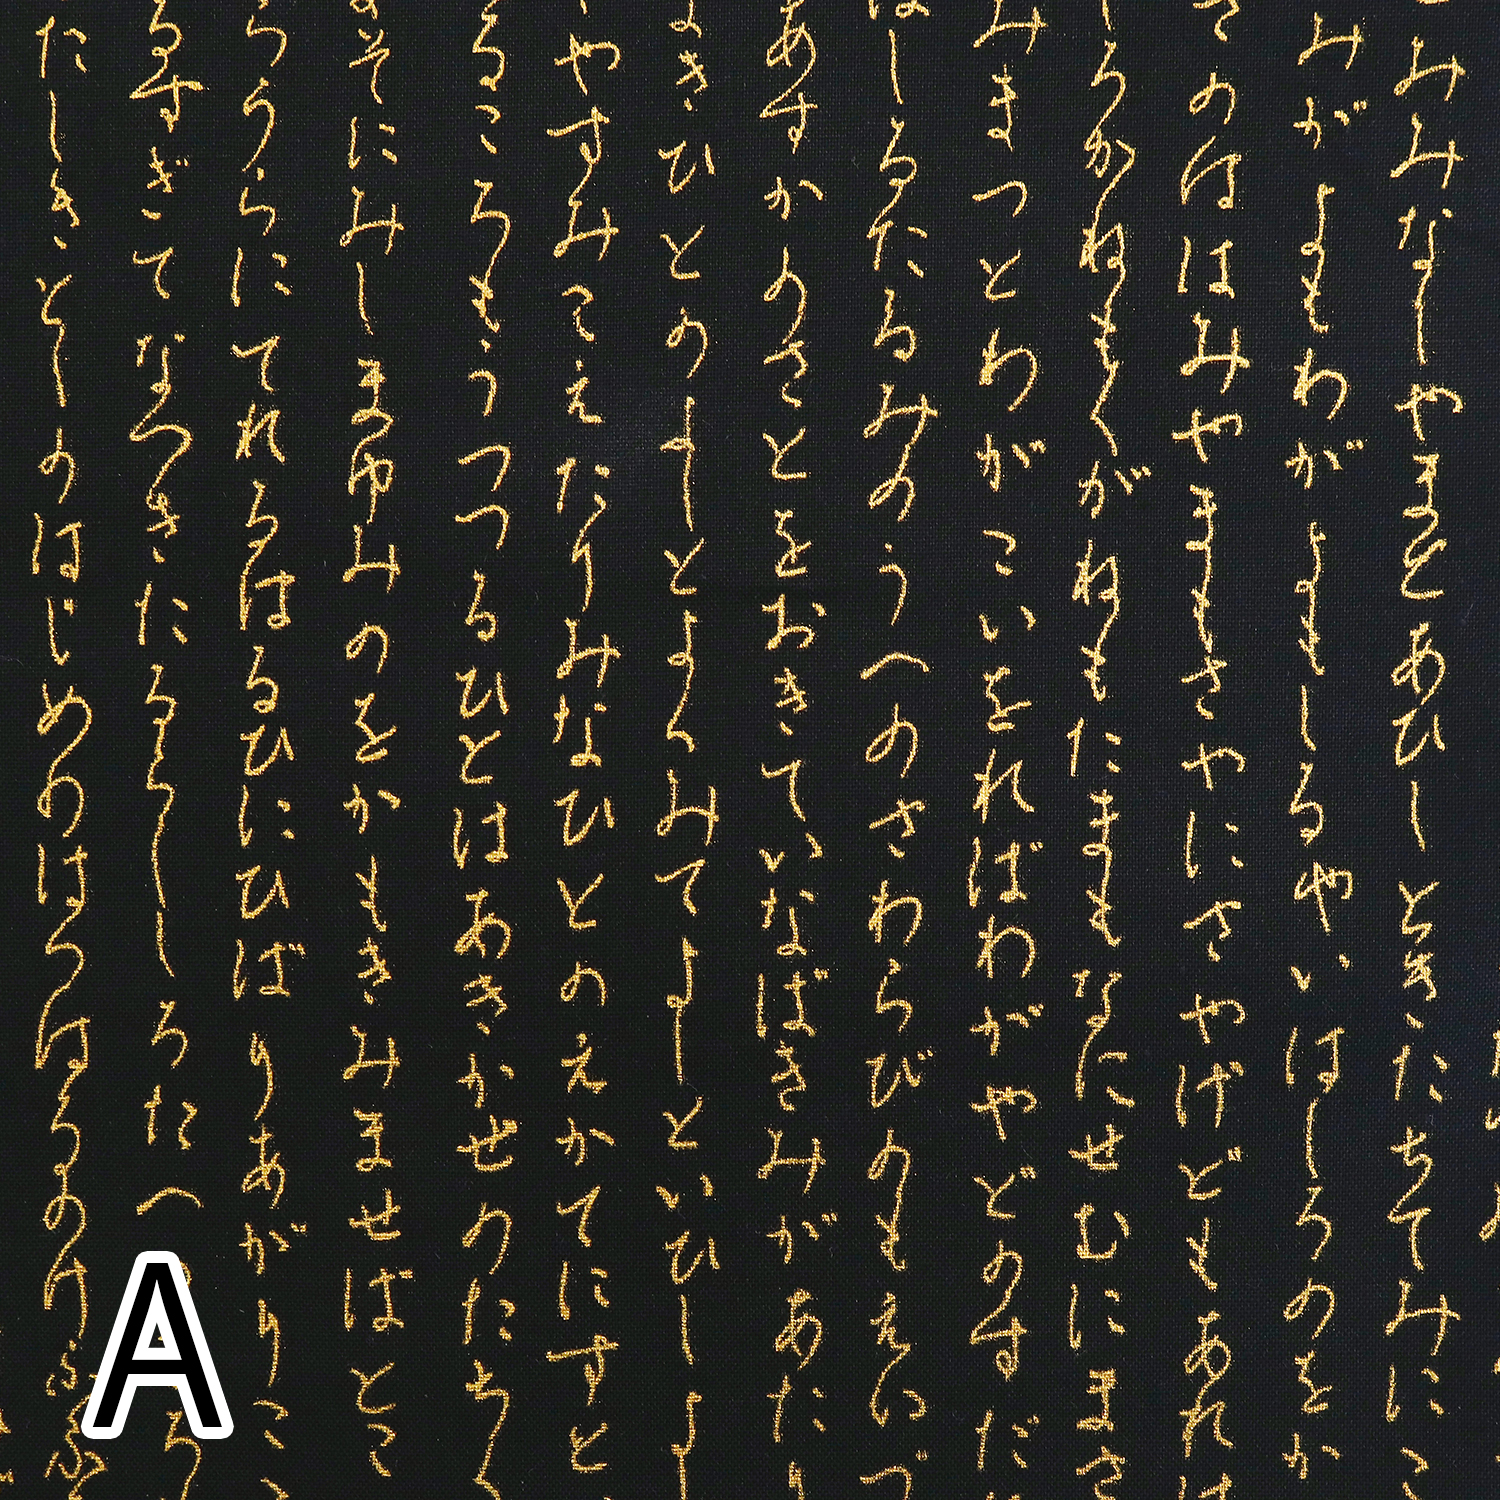 みみなしやまとあひしときたちてみにこ
みがよもわがよもしるやいはしろのをか
さのははみやまもさやにさやげどもあれは
しろかねもくがねもたまもなにせむにまさ
みまつとわがこいをればわがやどのすだ
はしるたるみのうへのさわらびのもえいづ
あすかのさとをおきていなばきみがあたり
よきひとのよしとよくみてよしといひしよ
やすみこえたりみなひとのえかてにすと
るころもうつつるひとはあきかぜのたちく
そにみしまゆみのをかもきみませばとこ
らうらにてれるはるひにひばりあがりこ
るすぎてなつきたるらししろたへ
たしきとしのはじめのはつはるのけふふる
A